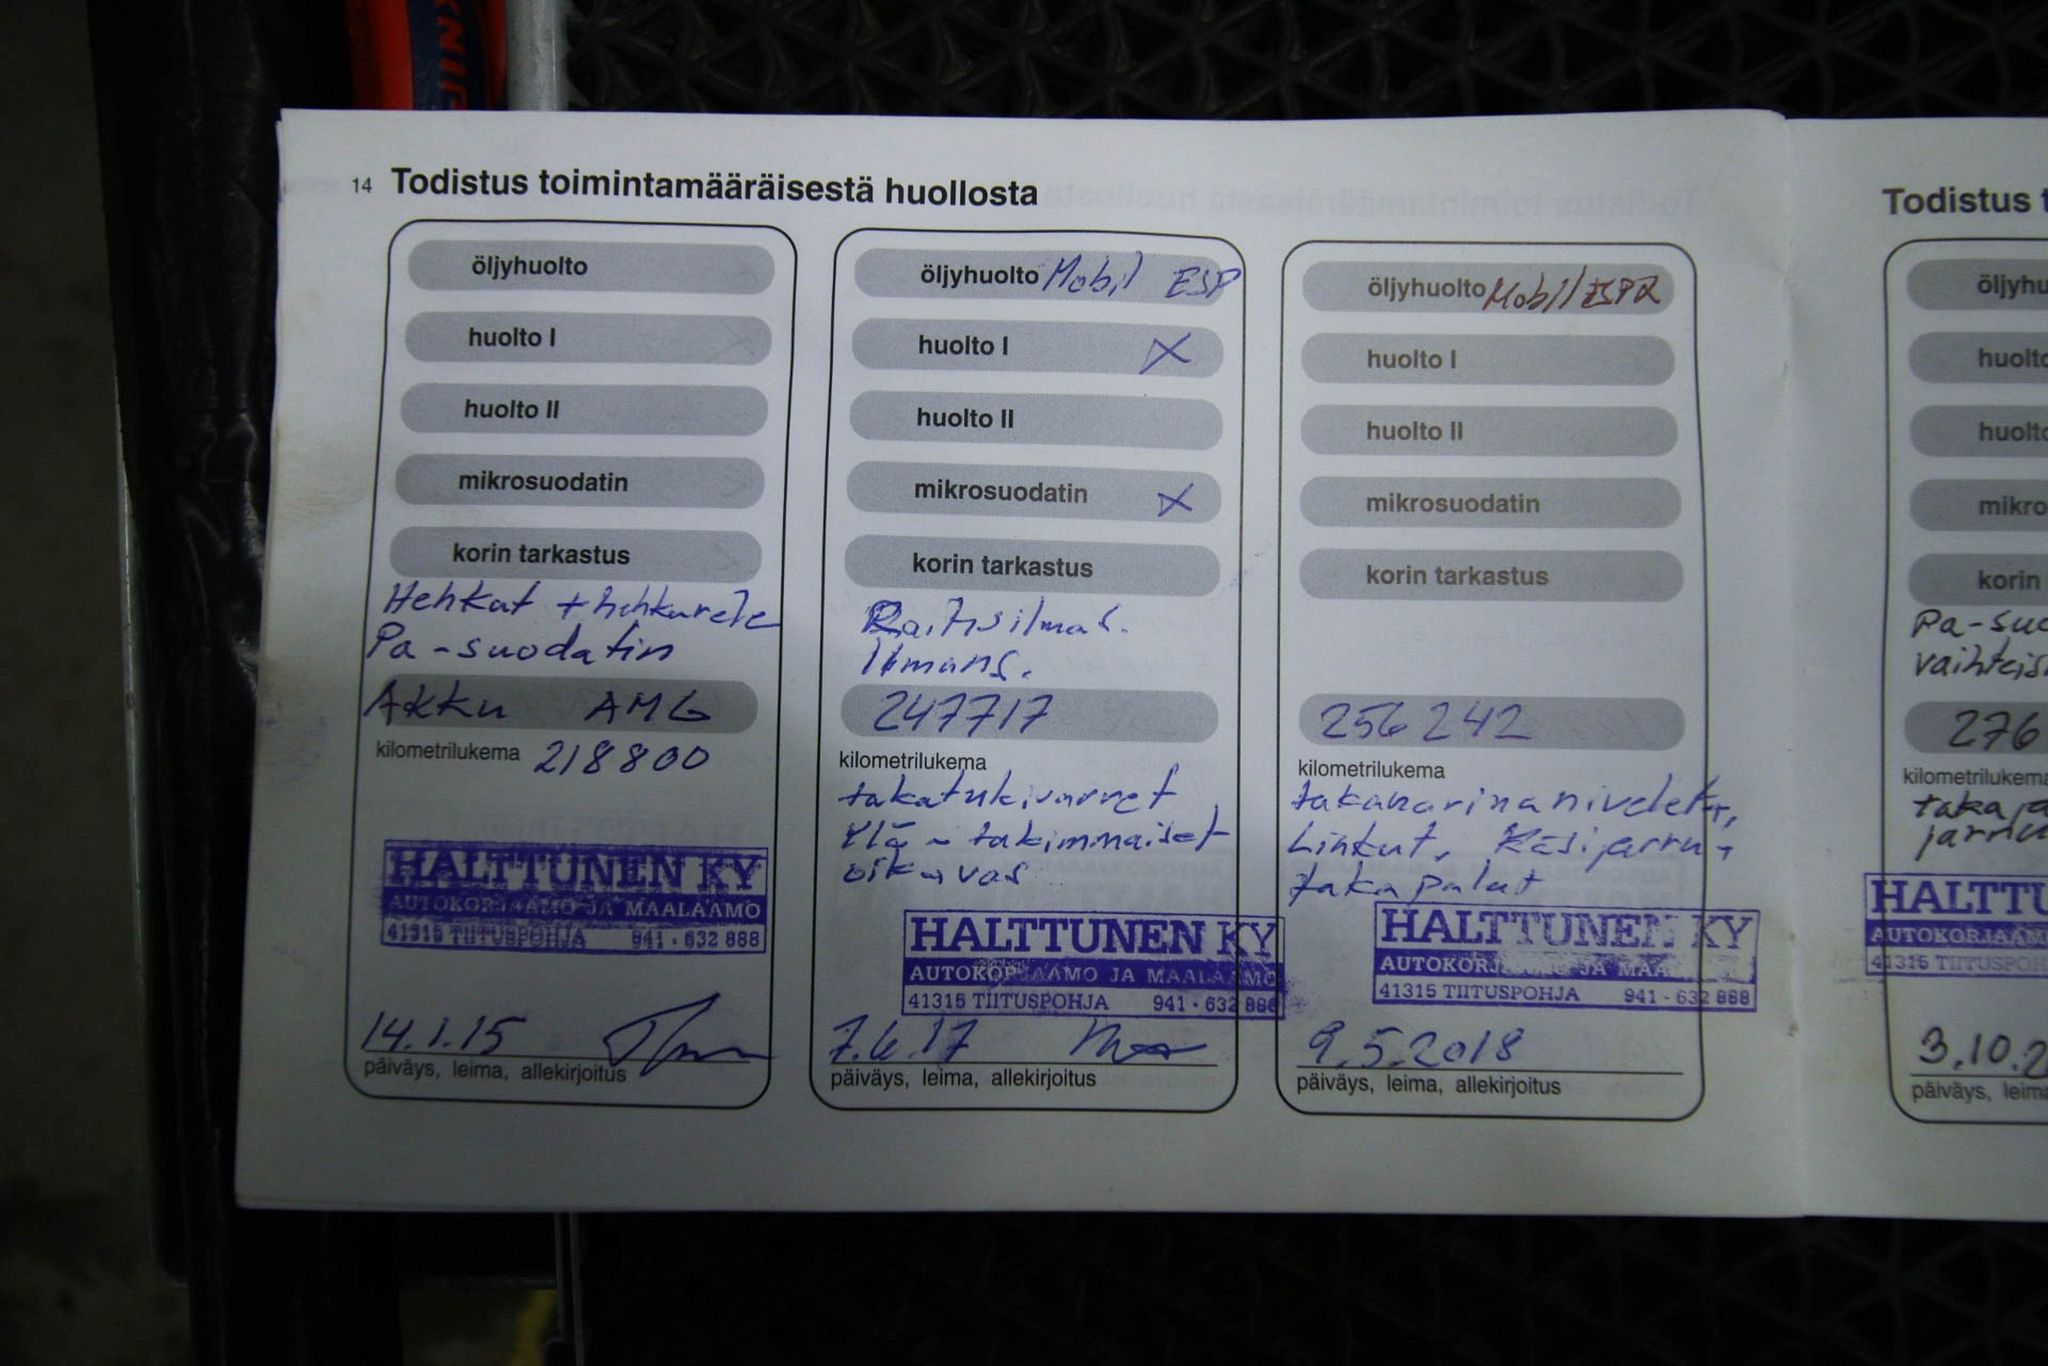 KNIP
14 Todistus toimintamääräisestä huollosta
öljyhuolto
huolto I
huolto II
mikrosuodatin
korin tarkastus
Hehkat +
Pa-suodatin
Akku AMG
kilometrilukema 218800
HALTTUNEN KY
AUTOKORJAAMO JA MAALAAMO
41315 TIITUSPOHJA 941-632 888
14.1.15
päiväys, leima, allekirjoitus
öljyhuolto Mobil ESP
huolto I X
huolto II
mikrosuodatin X
korin tarkastus
Raitisilmas.
Ilmans.
247717
kilometrilukema
takatukivarret
Ylä-takimmaiset
oik, vas
HALTTUNEN KY
AUTOKORJAAMO JA MAALAAMO
41315 TIITUSPOHJA 941-632 888
7.6.17
päiväys, leima, allekirjoitus
öljyhuolto Mobil ESP
huolto I
huolto II
mikrosuodatin
korin tarkastus
256242
kilometrilukema
Linkut, Käsijarru,
taka palat
HALTTUNEN KY
AUTOKORJAAMO JA MAALAAMO
41315 TIITUSPOHJA 941-632 888
9.5.2018
päiväys, leima, allekirjoitus
Todistus t
öljyhu
huolto
huolto
mikro
korin
Pa-suo
vaihteis
276
kilometrilukema
taka ja
jarru
HALTTU
AUTOKORJAAM
41315 TIITUSPOH
3.10.2
päiväys, leima